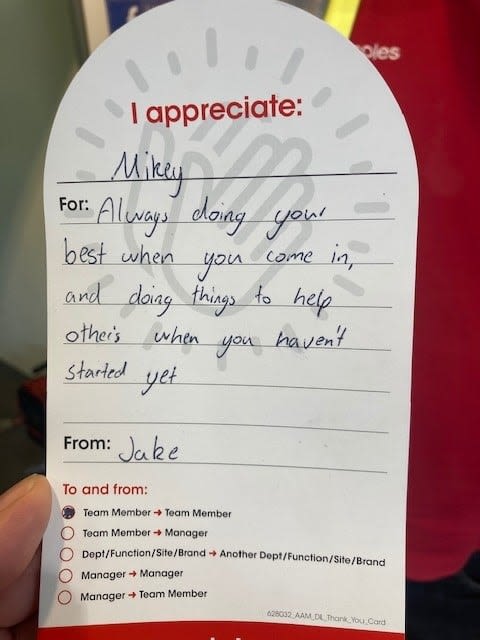 I appreciate:
Mikey
For: Always doing your
best when you come in,
and doing things to help
others when you haven't
started yet
From: Jake
To and from:
Team Member → Team Member
Team Member → Manager
Dept/Function/Site/Brand → Another Dept/Function/Site/Brand
Manager → Manager
Manager → Team Member
628032_AAM_DL_Thank_You_Card